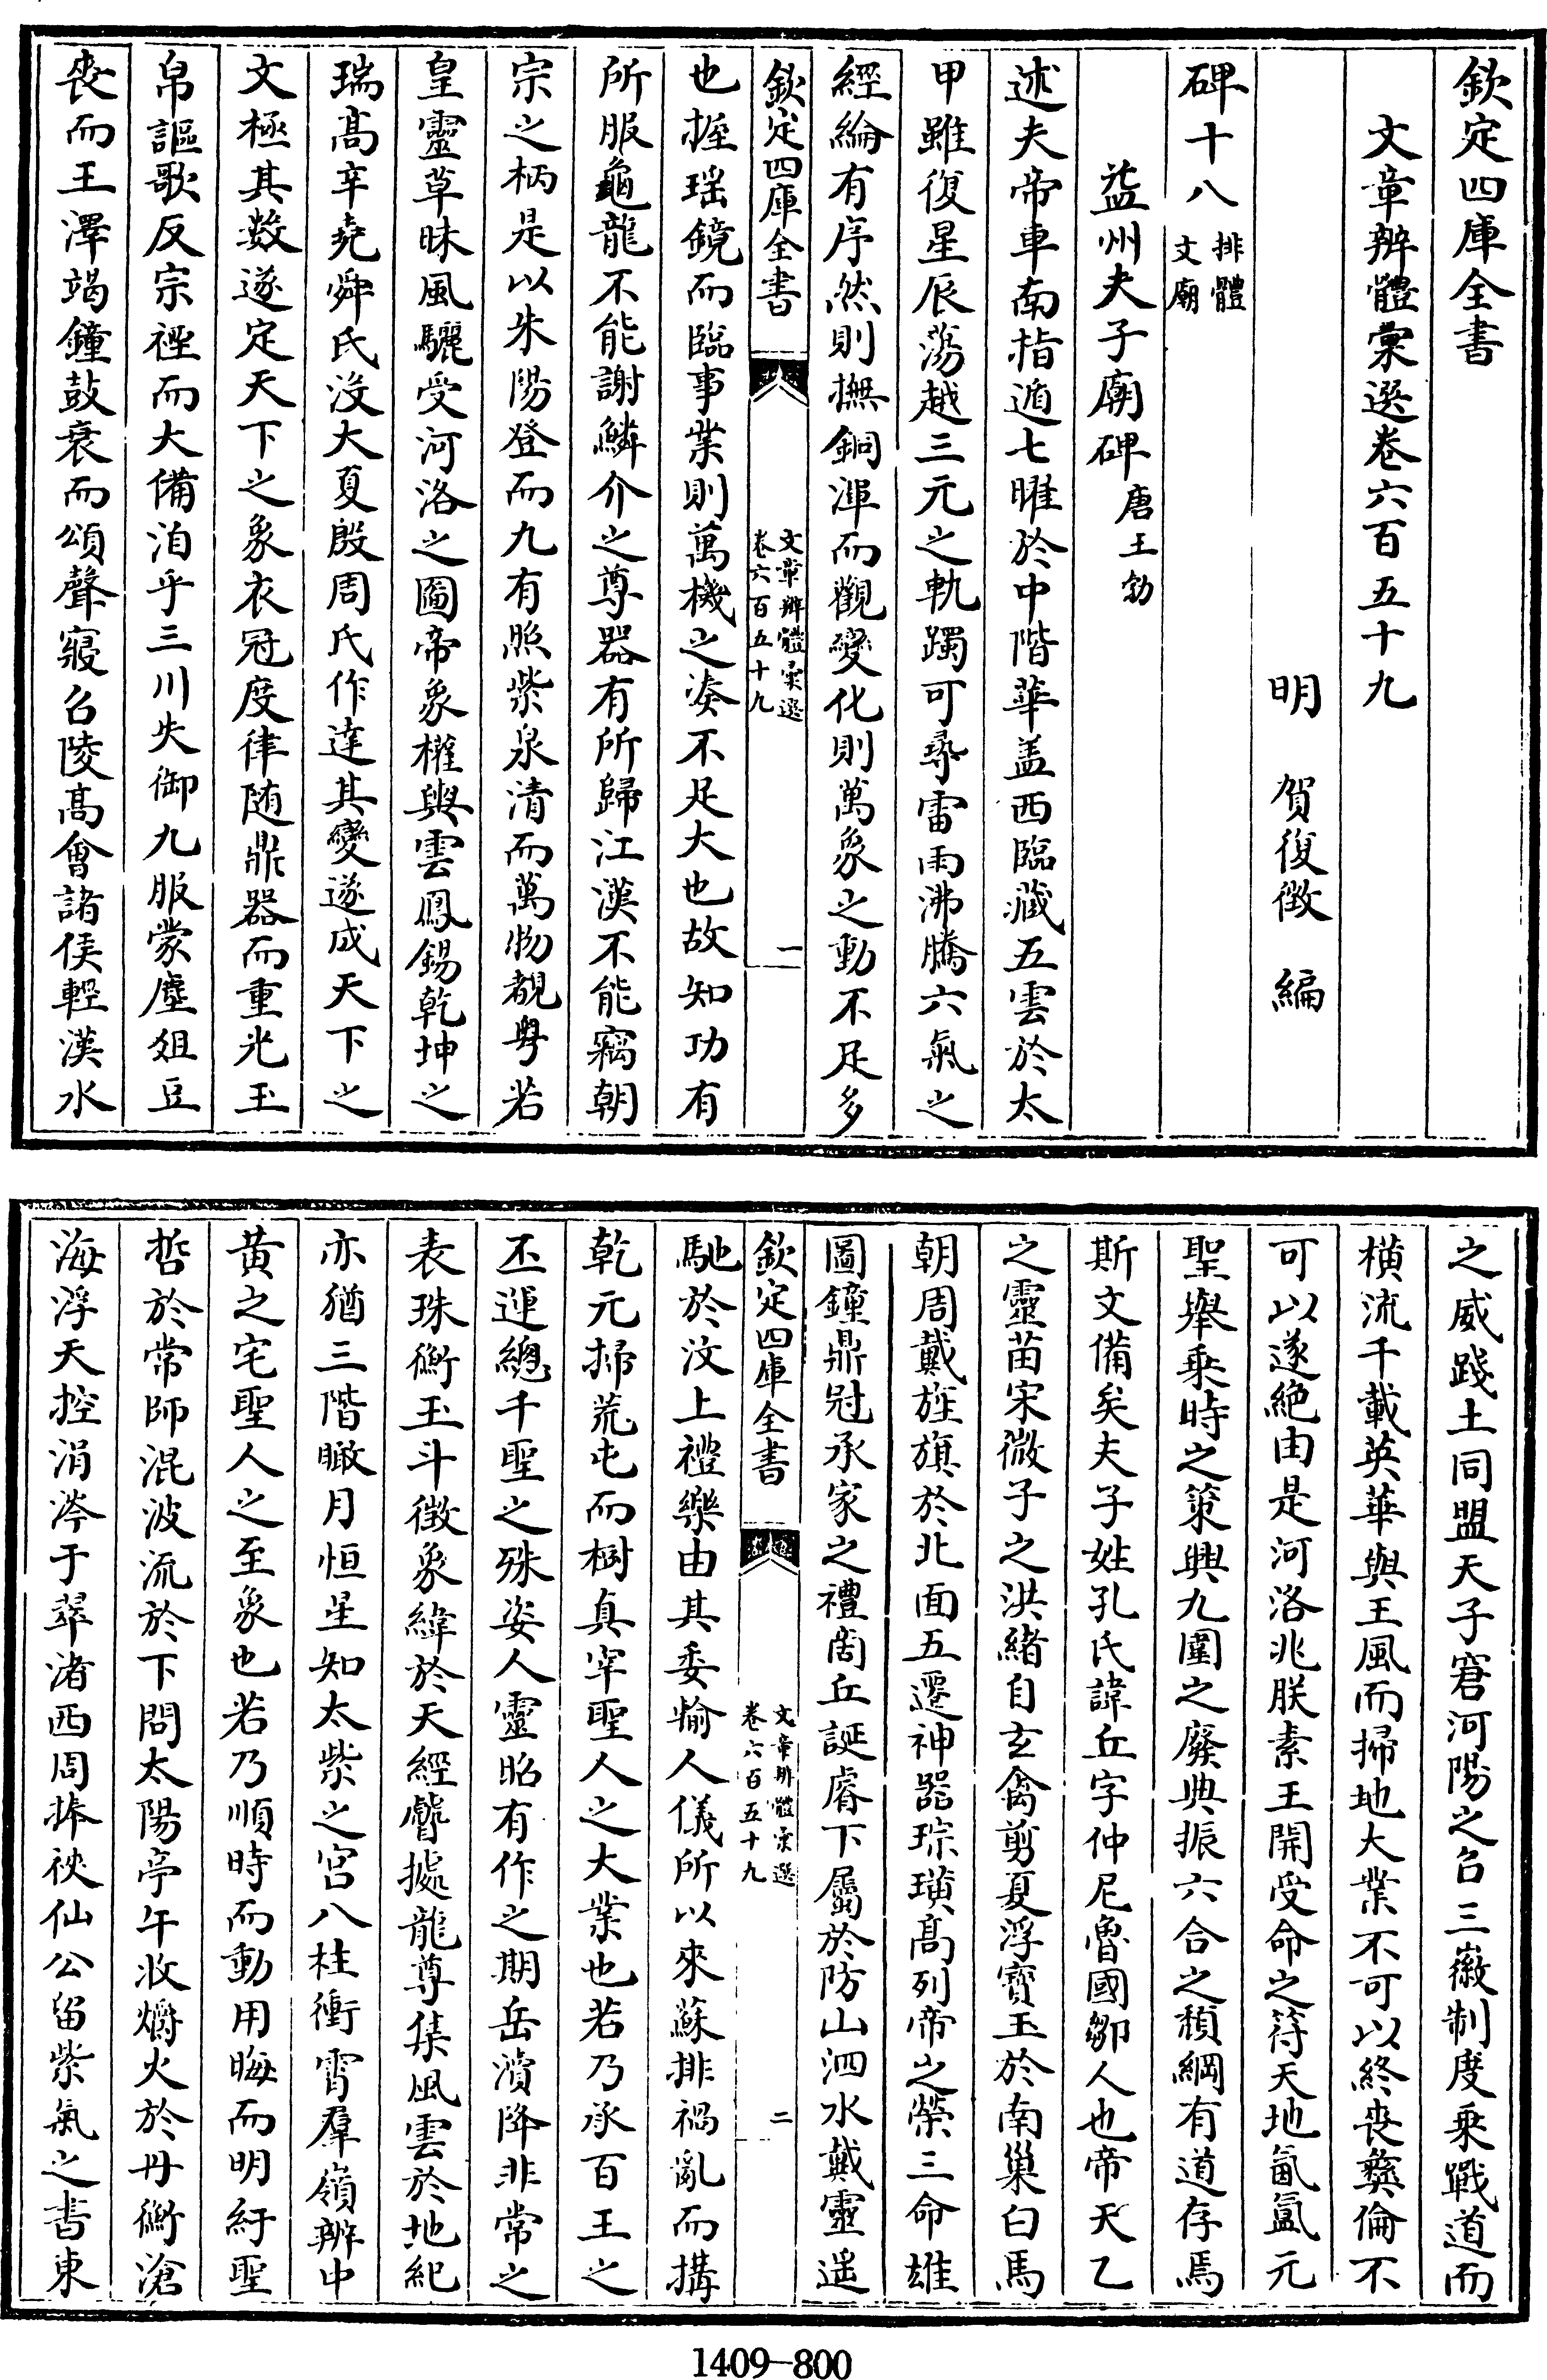 欽定四庫全書
文章辨體彙選卷六百五十九
明 賀復徵 編
碑十八 排體 文廟
益州夫子廟碑 唐王勃
述夫帝車南指遁七曜於中階華盖西臨藏五雲於太
甲雖復星辰蕩越三元之軌躅可尋雷雨沸騰六氣之
經綸有序然則撫銅渾而觀變化則萬象之動不足多
欽定四庫全書 文章辨體彙選 卷六百五十九 一
也握瑶鏡而臨事業則萬機之湊不足大也故知功有
所服龜龍不能謝鱗介之尊器有所歸江漢不能竊朝
宗之柄是以朱陽登而九有照紫泉清而萬物覩粤若
皇靈草昧風驪受河洛之圖帝象權輿雲鳳錫乾坤之
瑞髙辛堯舜氏沒大夏殷周氏作達其變遂成天下之
文極其數遂定天下之象衣冠度律随鼎器而重光玉
帛謳歌反宗禋而大備洎乎三川失御九服蒙塵俎豆
喪而王澤竭鐘鼓衰而頌聲寢召陵髙會諸侯輕漢水
之威踐土同盟天子窘河陽之召三徽制度乗戰道而
横流千載英華與王風而掃地大業不可以終喪彝倫不
可以遂絶由是河洛兆朕素王開受命之符天地氤氲元
聖舉乗時之策興九圍之廢典振六合之頽綱有道存焉
斯文備矣夫子姓孔氏諱丘字仲尼魯國鄒人也帝天乙
之靈苗宋微子之洪緒自玄禽剪夏浮寳玉於南巢白馬
朝周戴旌旗於北面五遷神器琮璜髙列帝之榮三命雄
圖鐘鼎冠承家之禮啇丘誕睿下屬於防山泗水戴靈遥
欽定四庫全書 文章辨體彙選 卷六百五十九 二
馳於汶上禮樂由其委輸人儀所以來蘇排禍亂而搆
乾元掃荒屯而樹真宰聖人之大業也若乃承百王之
丕運總千聖之殊姿人靈昭有作之期岳瀆降非常之
表珠衡玉斗徴象緯於天經虎據龍尊集風雲於地紀
亦猶三階瞰月恒星知太紫之宫八桂衝霄羣嶺辨中
黄之宅聖人之至象也若乃順時而動用晦而明紆聖
哲於常師混波流於下問太陽亭午收爝火於丹衡滄
海浮天控涓涔于翠渚西周捧袂仙公留紫氣之書東
1409-800